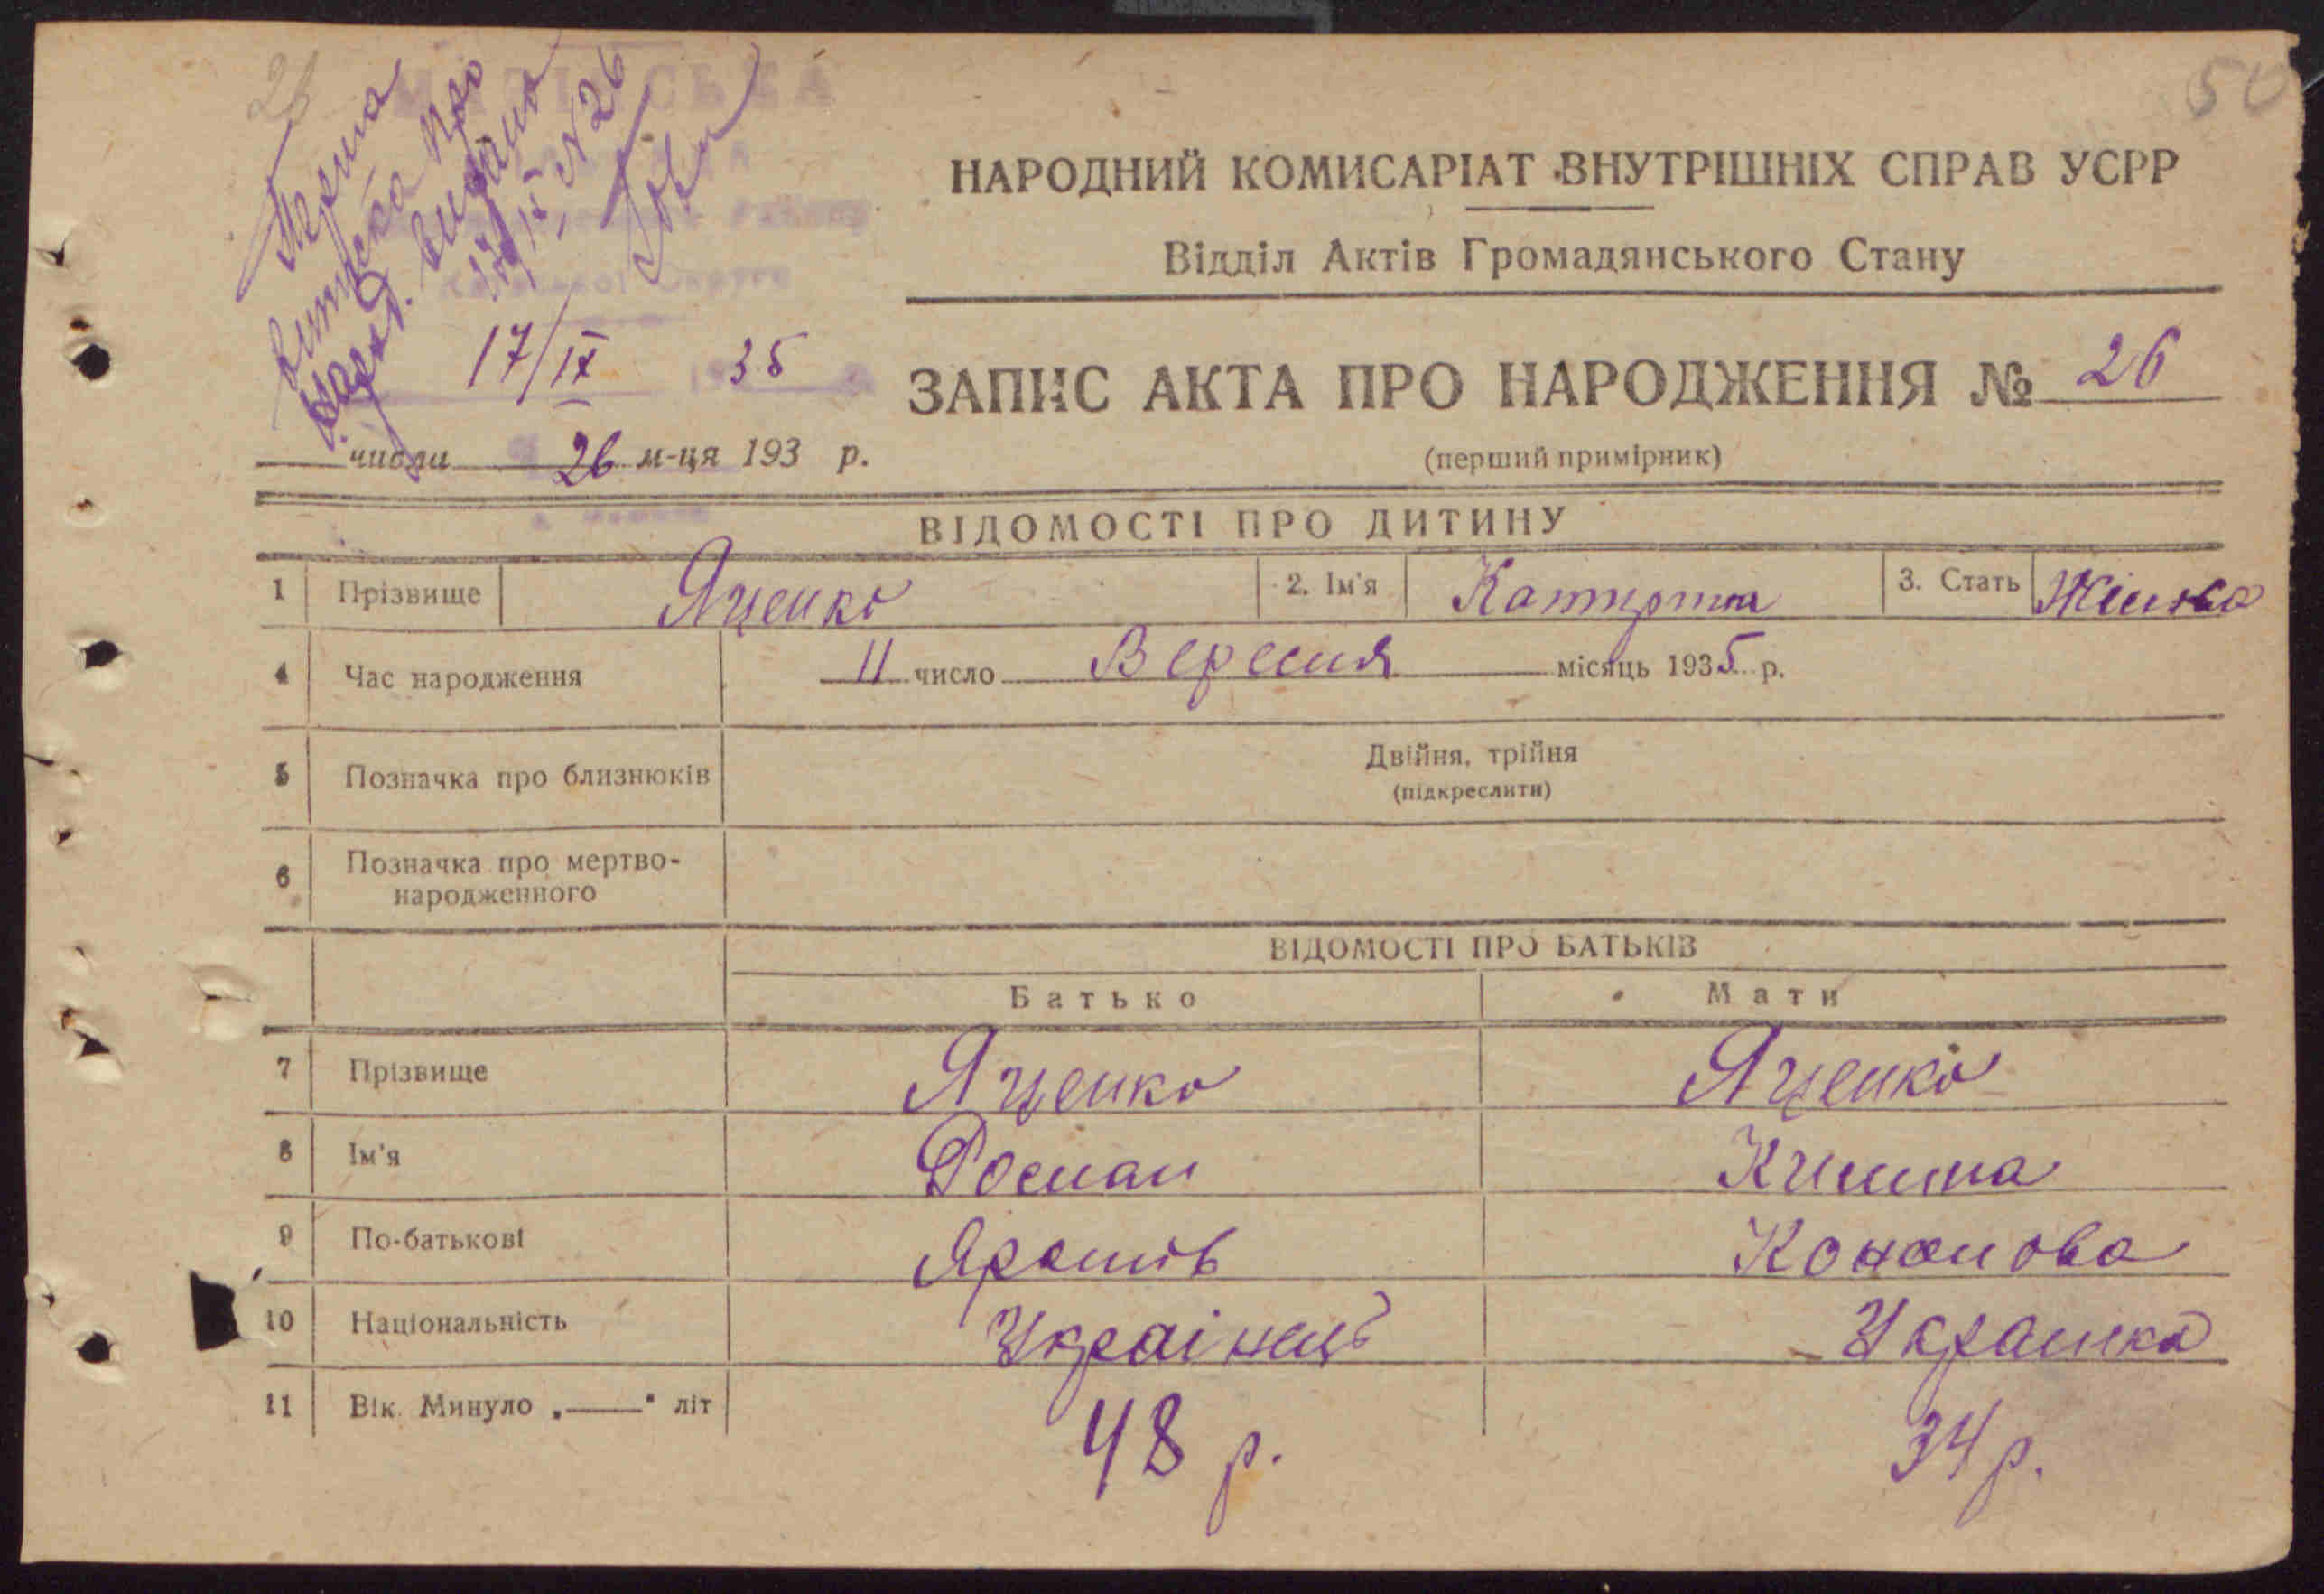 26
50
НАРОДНИЙ КОМИСАРІАТ ВНУТРІШНІХ СПРАВ УСРР
Відділ Актів Громадянського Стану
17/IX 35
ЗАПИС АКТА ПРО НАРОДЖЕННЯ № 26
числа 26 м-ця 193 р.
(перший примірник)
ВІДОМОСТІ ПРО ДИТИНУ
1 Прізвище Яценко 2. Ім'я Катирина 3. Стать Жінка
4 Час народження 11 число Вересня місяць 1935 р.
5 Позначка про близнюків Двійня, трійня
(підкреслити)
6 Позначка про мертво-
народженного
ВІДОМОСТІ ПРО БАТЬКІВ
Батько Мати
7 Прізвище Яценко Яценко
8 Ім'я Роман
9 По-батькові Кононова
10 Національність Украінець Украінка
11 Вік. Минуло „——“ літ 48 р. 34 р.